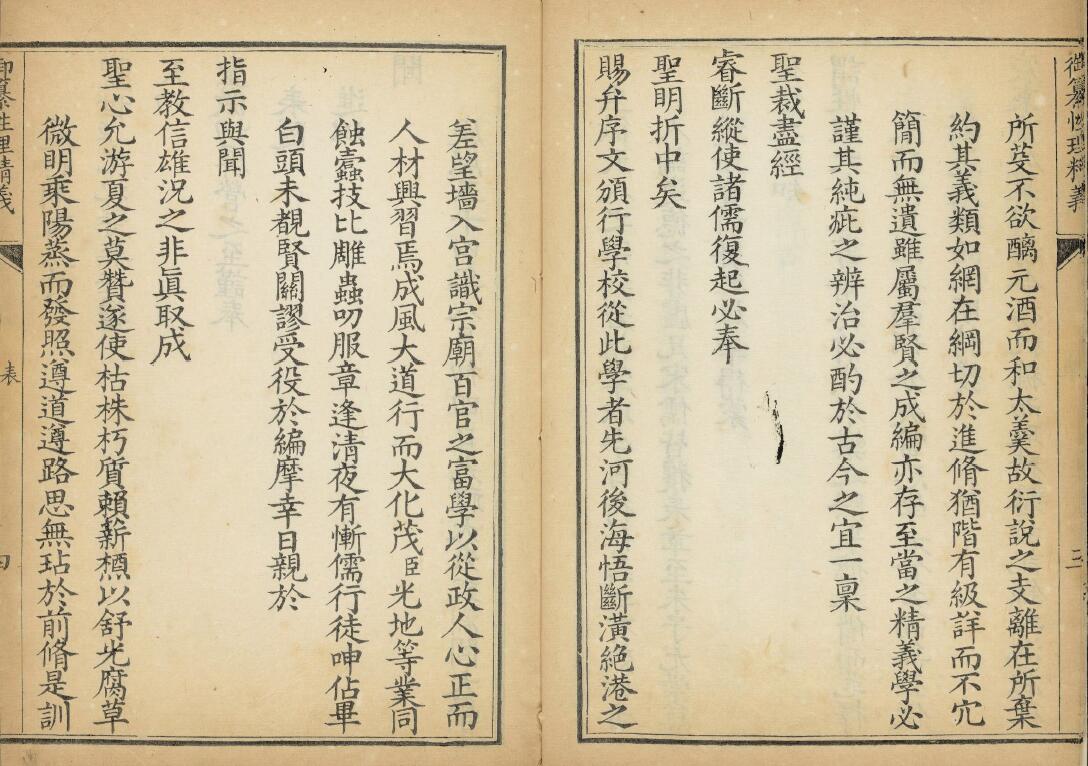 御纂性理精義
三
所芟不欲醨元酒而和太羹故衍說之支離在所棄
約其義類如網在綱切於進脩猶階有級詳而不冗
簡而無遺雖屬羣賢之成編亦存至當之精義學必
謹其純疵之辨治必酌於古今之宜一稟
聖裁盡經
睿斷縱使諸儒復起必奉
聖明折中矣
賜弁序文頒行學校從此學者先河後海悟斷潢絶港之
差望墻入宫識宗廟百官之富學以從政人心正而
人材興習焉成風大道行而大化茂臣光地等業同
蝕蠹技比雕蟲叨服章逢清夜有慚儒行徒呻佔畢
白頭未覩賢關謬受役於編摩幸日親於
指示與聞
至教信雄況之非眞取成
聖心允游夏之莫贊遂使枯株朽質賴薪槱以舒光腐草
微明乘陽蒸而發照遵道遵路思無玷於前脩是訓
御纂性理精義
表
四